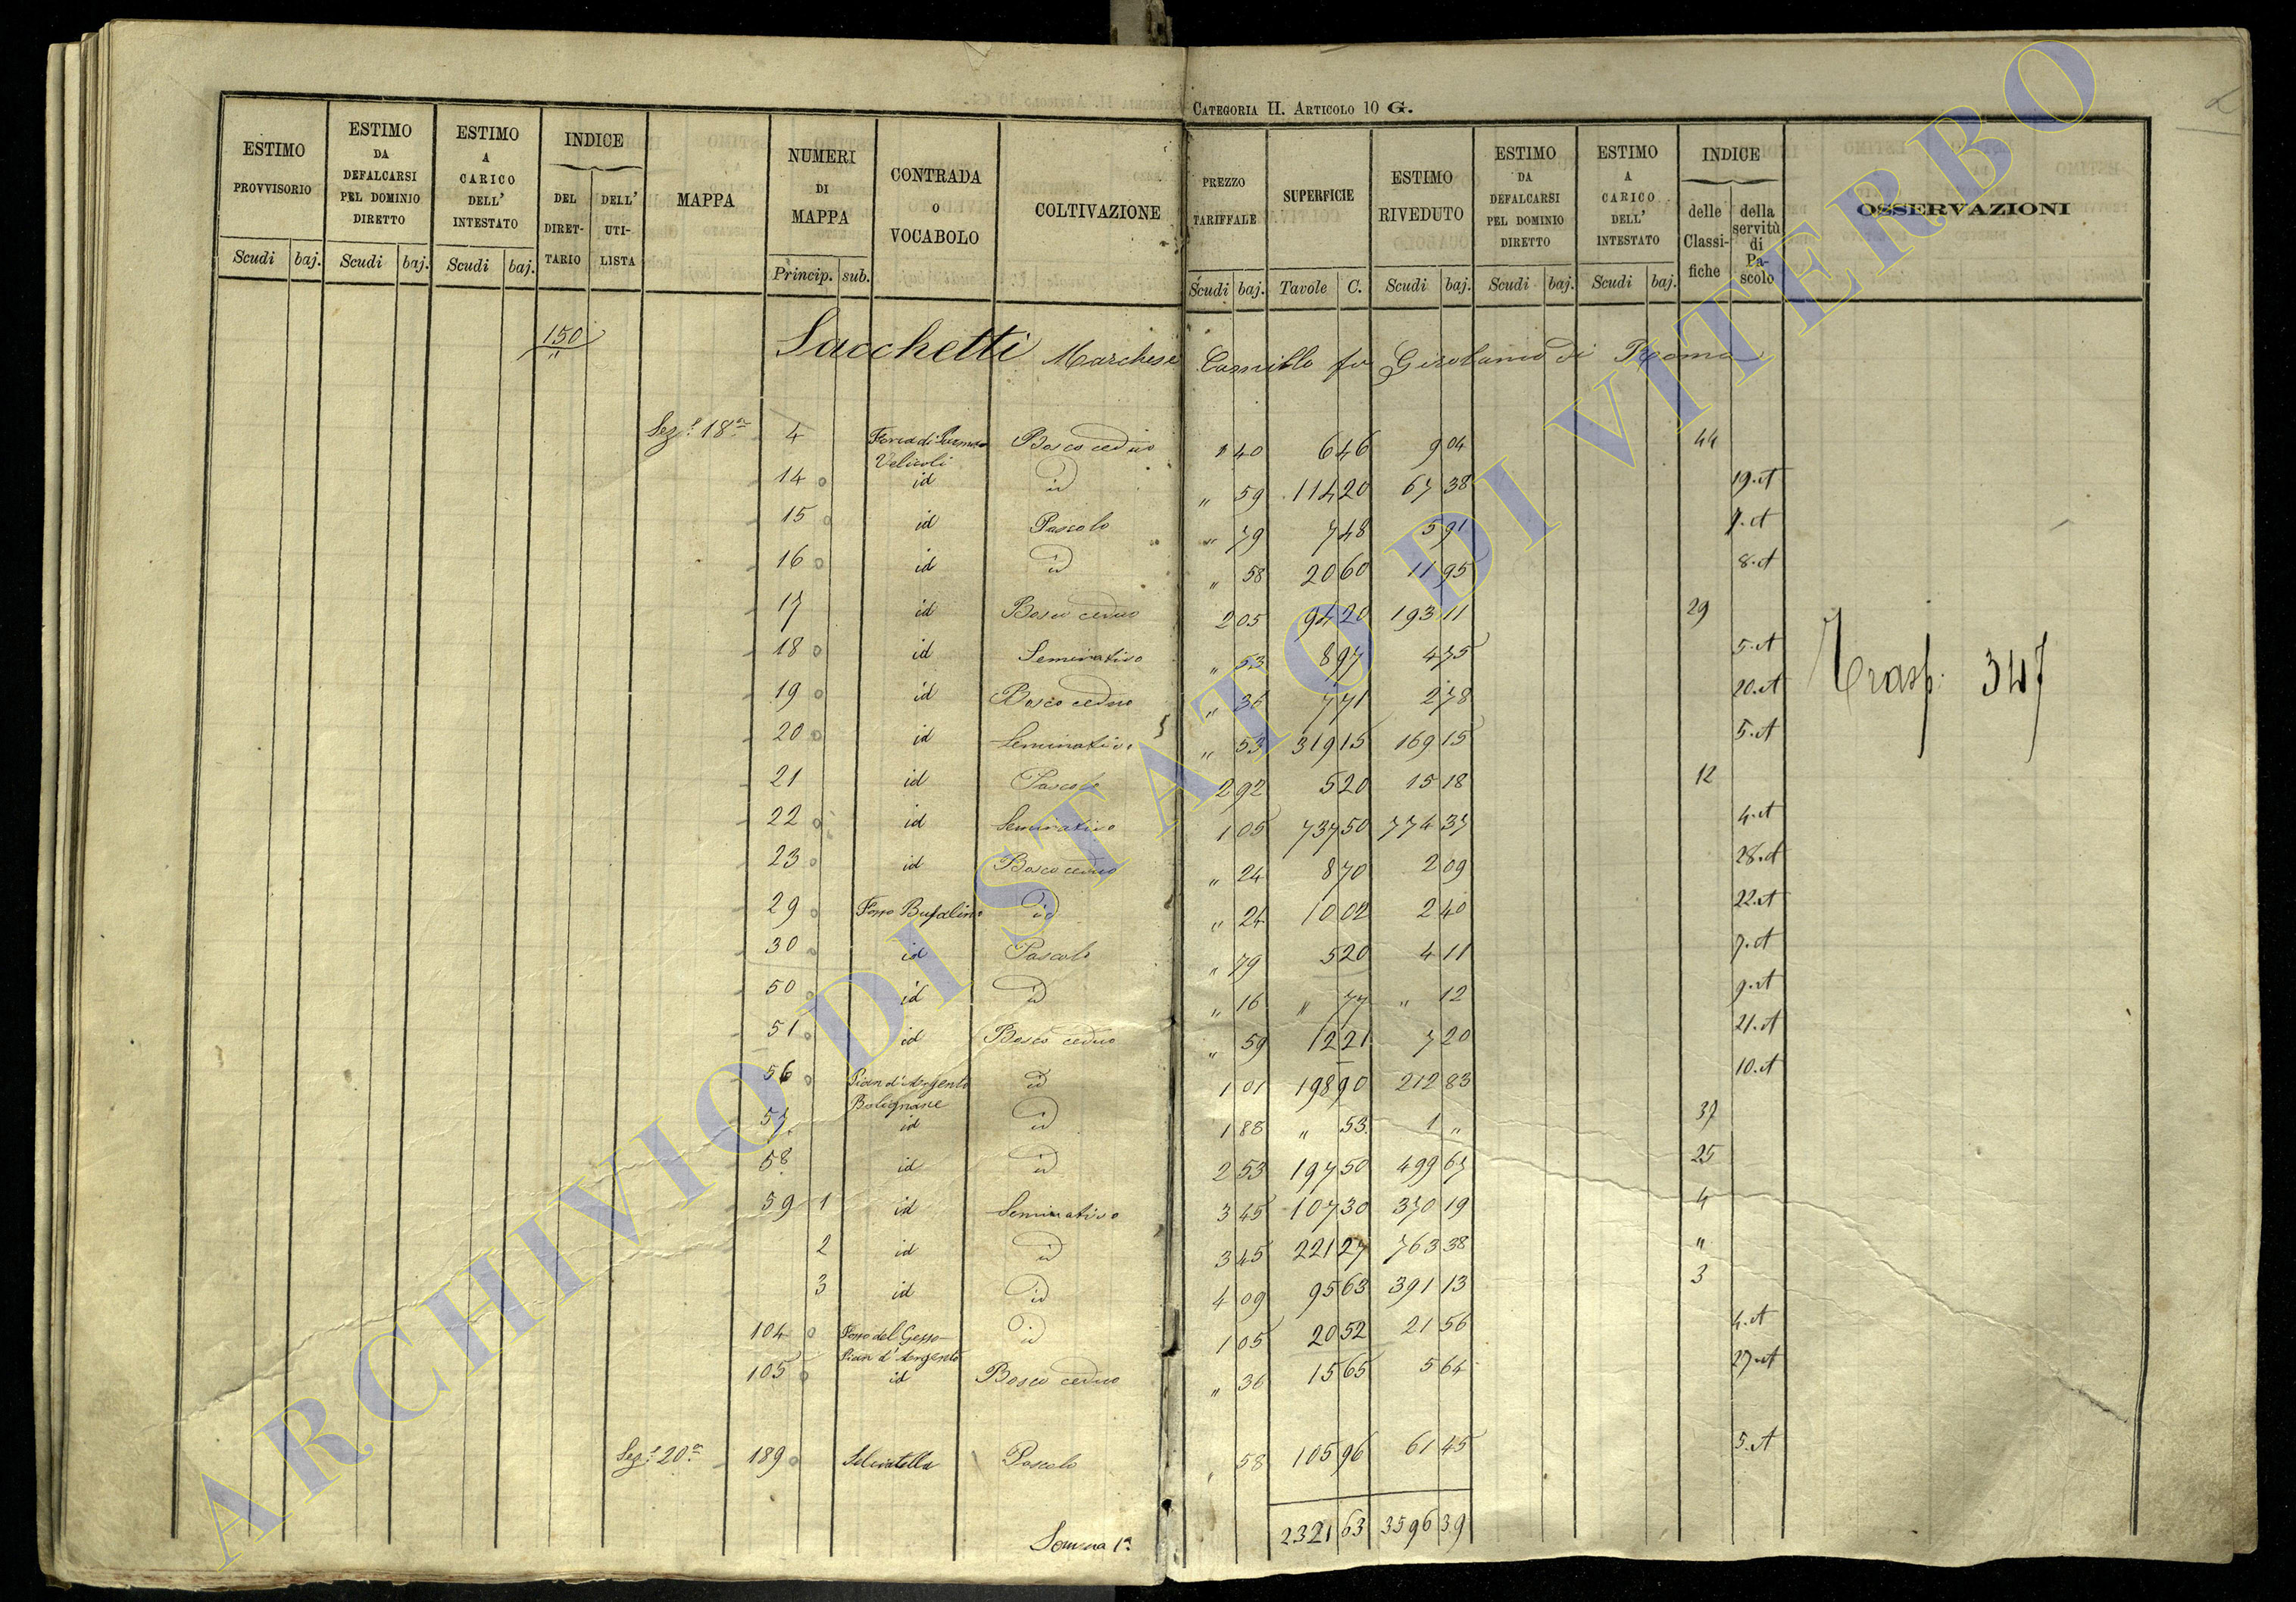 CATEGORIA II. ARTICOLO 10 G.
ESTIMO PROVVISORIO Scudi baj.
ESTIMO DA DEFALCARSI PEL DOMINIO DIRETTO Scudi baj.
ESTIMO A CARICO DELL' INTESTATO Scudi baj.
INDICE DEL DIRETTARIO DELL' UTILISTA
MAPPA
NUMERI DI MAPPA Princip. sub.
CONTRADA O VOCABOLO
COLTIVAZIONE
PREZZO TARIFFALE Scudi baj.
SUPERFICIE Tavole C.
ESTIMO RIVEDUTO Scudi baj.
ESTIMO DA DEFALCARSI PEL DOMINIO DIRETTO Scudi baj.
ESTIMO A CARICO DELL' INTESTATO Scudi baj.
INDICE delle Classifiche della servitù di Pascolo
OSSERVAZIONI
150 Sacchetti Marchese Camillo fu Girolamo di Roma
Sez.e 18a 4 Bosco ceduo 1 40 6 46 9 04 44
Velicoli
14 id id " 59 114 20 67 38 19.A
15 id Pascolo " 79 7 48 5 91 7.A
16 id id " 58 20 60 11 95 8.A
17 id Bosco ceduo 2 05 94 20 193 11 29
18 id Seminativo " 53 8 97 4 75 5.A
19 id Bosco ceduo " 36 7 71 2 78 20.A
20 id Seminativo " 53 319 15 169 15 5.A
21 id Pascolo 2 92 5 20 15 18 12
22 id Seminativo 1 05 737 50 774 37 4.A
23 id Bosco ceduo " 24 8 70 2 09 28.A
29 Fosso Bufalino id " 24 10 02 2 40 22.A
30 id Pascolo " 79 5 20 4 11 7.A
50 id id " 16 " 77 " 12 9.A
51 id Bosco ceduo " 59 12 21 7 20 21.A
56 Pian d'Argento id 1 01 198 90 212 83 10.A
Bolignane
57 id id 1 88 " 53 1 " 37
58 id id 2 53 197 50 499 67 25
59 1 id Seminativo 3 45 107 30 370 19 4
2 id id 3 45 221 27 763 38 "
3 id id 4 09 95 63 391 13 3
104 Fosso del Gesso id 1 05 20 52 21 56 4.A
Pian d'Argento
105 id Bosco ceduo " 36 15 65 5 64 27.A
Sez.e 20a 189 Selvatella Pascolo " 58 105 96 61 45 5.A
Somma 1a 2321 63 3596 39
Trasp. 347
ARCHIVIO DI STATO DI VITERBO